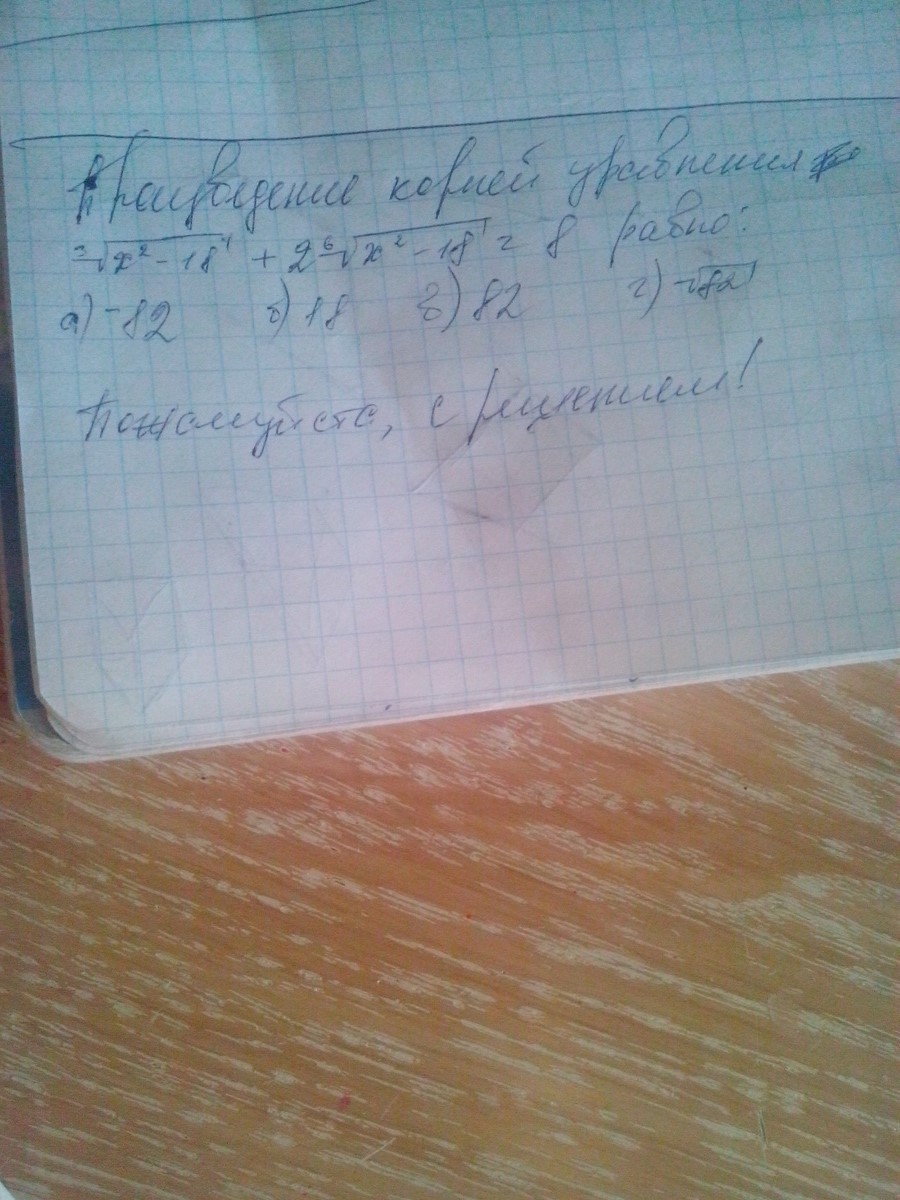 Произведение корней уравнения
³√x²-18 + 2⁶√x²-18 = 8 равно:
а) -82 б) 18 в) 82 г) -√82
Пожалуйста, с решением!